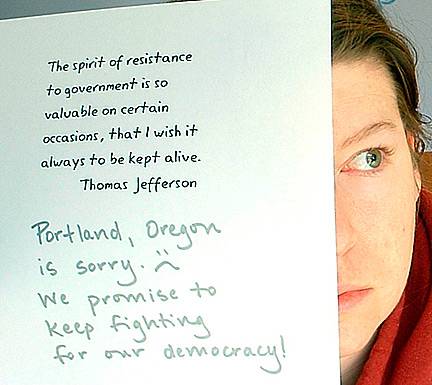 The spirit of resistance
to government is so
valuable on certain
occasions, that I wish it
always to be kept alive.
Thomas Jefferson
Portland, Oregon
is sorry. :(
We promise to
keep fighting
for our democracy!